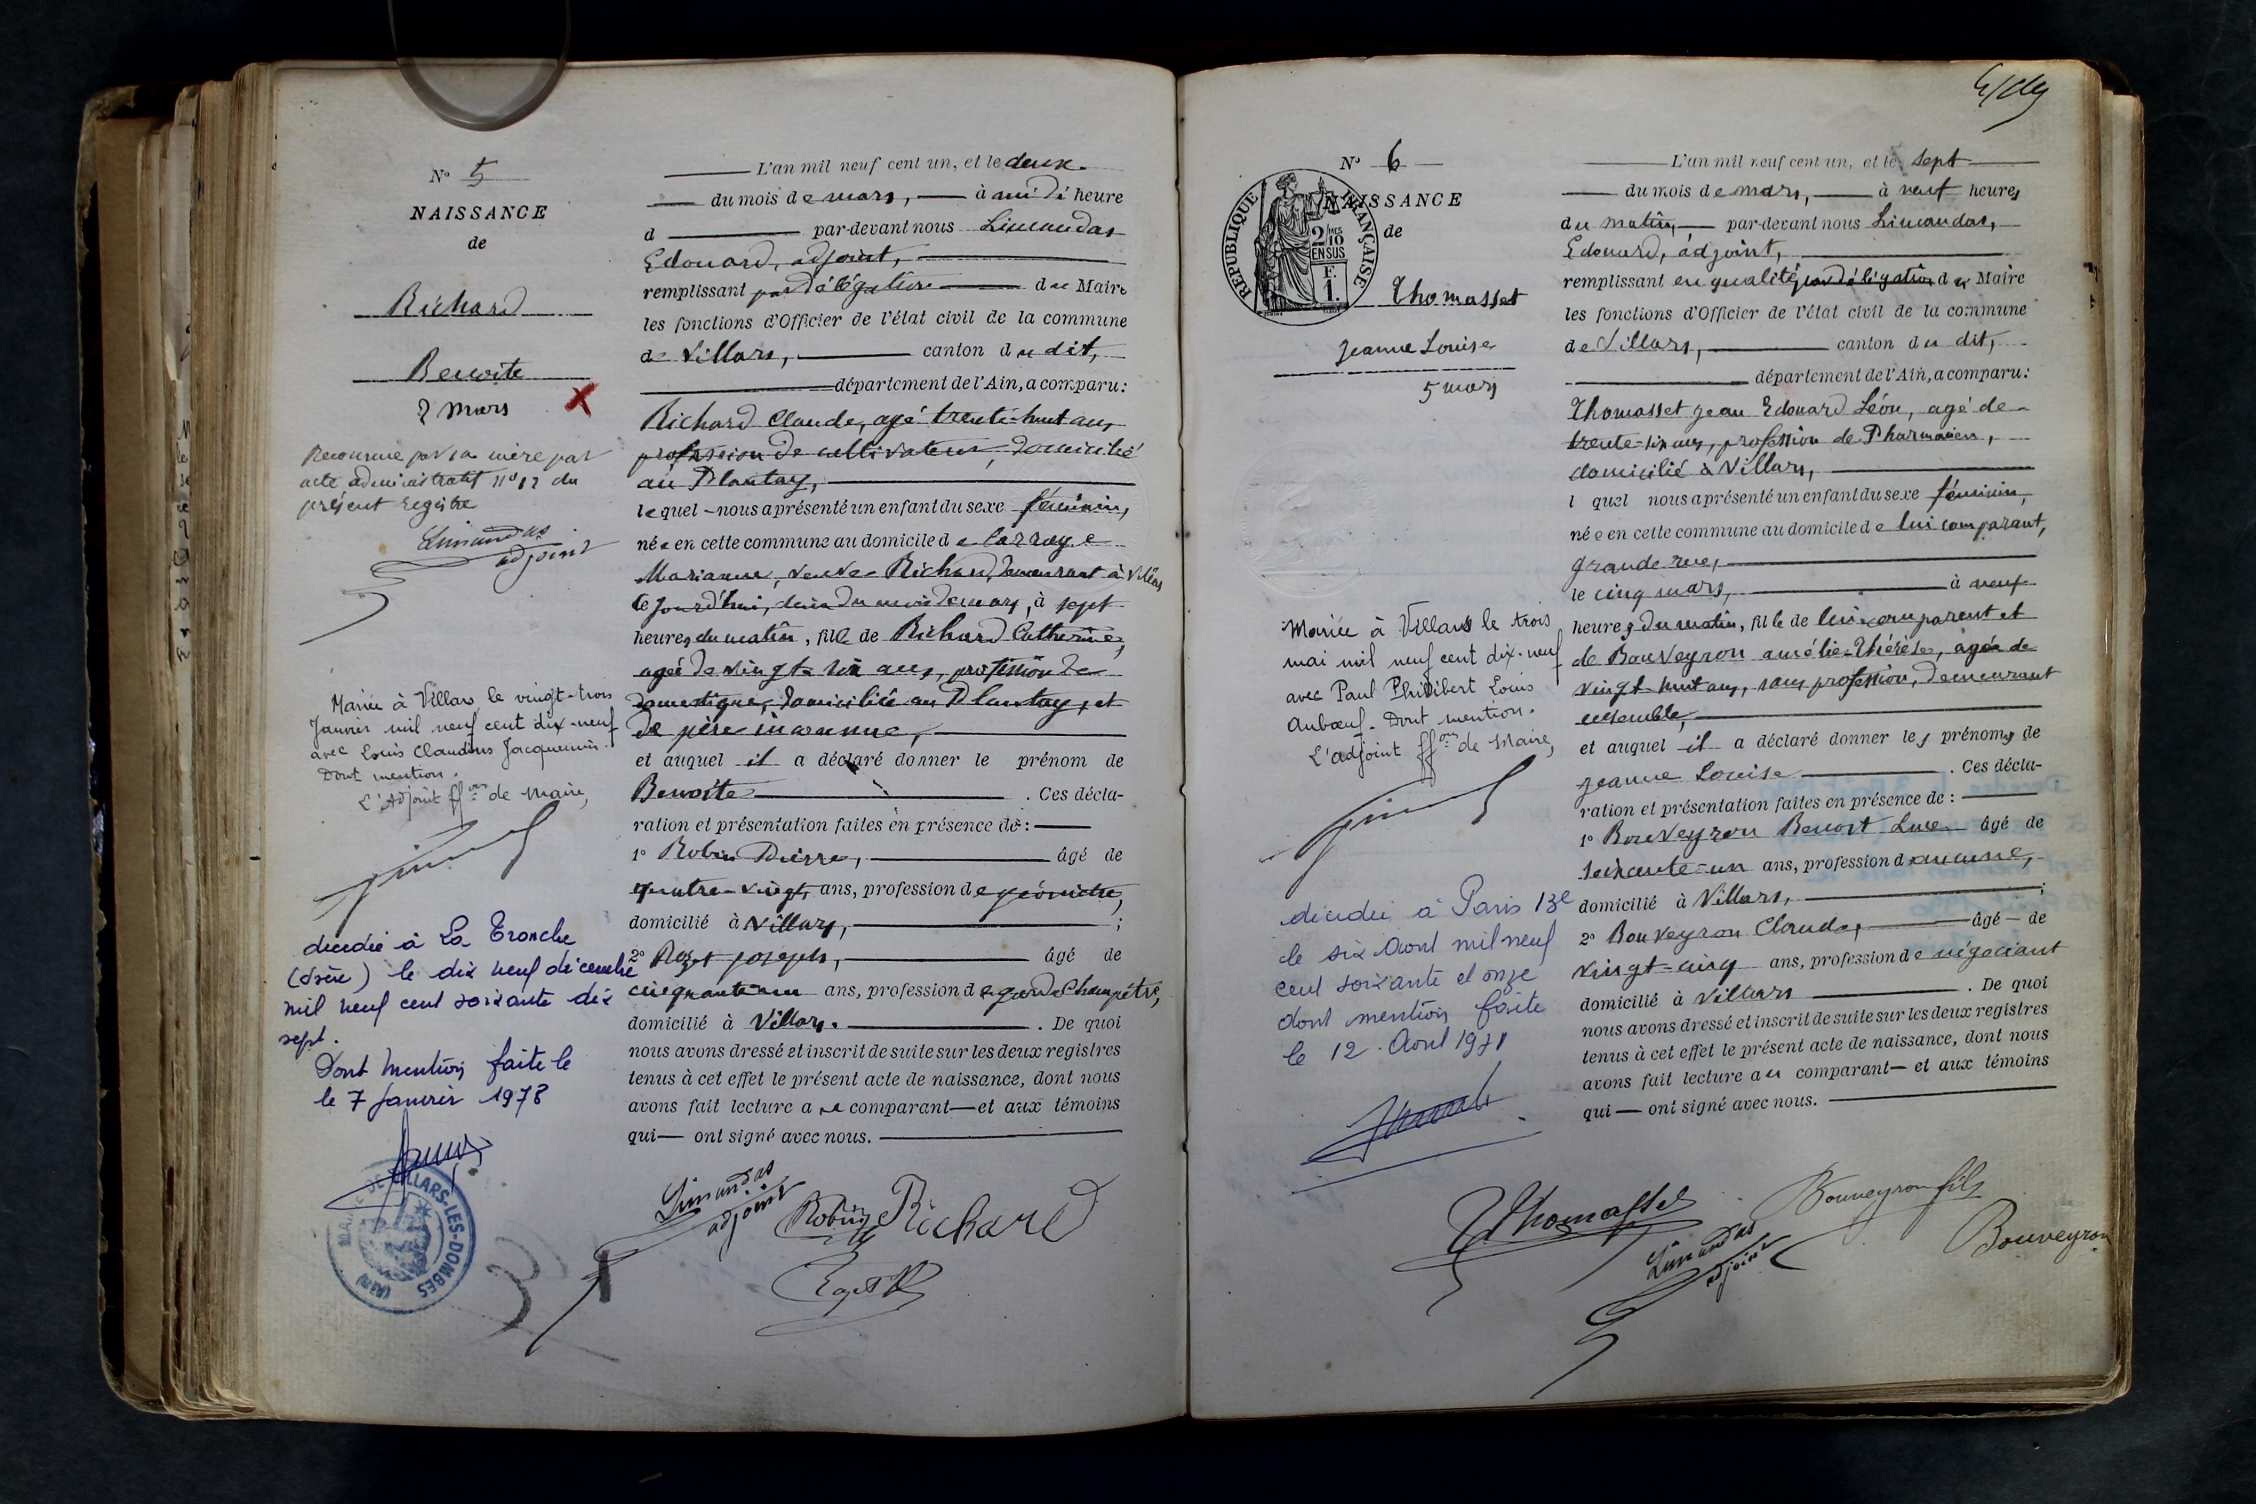 N° 5
NAISSANCE
de
Richard
Benoite
2 mars
Reconnue par sa mère par
acte administratif n° 12 du
présent registre
Limandas
adjoint
Mariée à Villars le vingt-trois
Janvier mil neuf cent dix-neuf
avec Louis Claudius Jacquemin.
Dont mention.
L'Adjoint ff.ons de Maire,
décédée à La Tronche
(Isère) le dix neuf décembre
mil neuf cent soixante dix
sept.
Dont mention faite le
le 7 Janvier 1978
MAIRIE DE VILLARS-LES-DOMBES (AIN)
L'an mil neuf cent un, et le deux
du mois de mars, à midi heure
d par-devant nous Limandas
Edouard, adjoint,
remplissant par délégation du Maire
les fonctions d'Officier de l'état civil de la commune
de Villars, canton du dit,
département de l'Ain, a comparu:
Richard Claude, agé trente-huit ans,
profession de cultivateur, domicilié
au Plantay,
lequel nous a présenté un enfant du sexe féminin,
née en cette commune au domicile de Carrage
Marianne, veuve Richard, demeurant à Villars
le jourd'hui, deux du mois de mars, à sept
heures du matin, fille de Richard Catherine,
agée de vingt-six ans, profession de
domestique, domiciliée au Plantay, et
de père inconnu,
et auquel il a déclaré donner le prénom de
Benoite . Ces décla-
ration et présentation faites en présence de:
1° Robin Pierre, âgé de
quatre-vingts ans, profession de géomètre,
domicilié à Villars, ;
2° Rozet Joseph, âgé de
cinquante-un ans, profession de garde champêtre,
domicilié à Villars. . De quoi
nous avons dressé et inscrit de suite sur les deux registres
tenus à cet effet le présent acte de naissance, dont nous
avons fait lecture au comparant et aux témoins
qui ont signé avec nous.
Limandas
adjoint
Robin Richard
3
N° 6
NAISSANCE
de
RÉPUBLIQUE FRANÇAISE
2/10 EN SUS
F. 1.
Thomasset
Jeanne Louise
5 mars
Mariée à Villars le trois
mai mil neuf cent dix-neuf
avec Paul Philibert Louis
Aubœuf. Dont mention.
L'adjoint ff.ons de Maire,
décédée à Paris 13e
le six Aout mil neuf
cent soixante et onze
dont mention faite
le 12 Aout 1971
L'an mil neuf cent un, et le sept
du mois de mars, à neuf heures
du matin, par-devant nous Limandas,
Edouard, adjoint,
remplissant en qualité par délégation du Maire
les fonctions d'Officier de l'état civil de la commune
de Villars, canton du dit,
département de l'Ain, a comparu:
Thomasset Jean Edouard Léon, agé de
trente-six ans, profession de Pharmacien,
domicilié à Villars,
l quel nous a présenté un enfant du sexe féminin,
née en cette commune au domicile de lui comparant,
grande rue,
le cinq mars, à neuf
heures du matin, fille de lui comparant et
de Bouveyron Amélie-Thérèse, agée de
vingt-huit ans, sans profession, demeurant
ensemble,
et auquel il a déclaré donner les prénoms de
Jeanne Louise . Ces décla-
ration et présentation faites en présence de:
1° Bouveyron Benoit Luce âgé de
soixante-un ans, profession d aucune,
domicilié à Villars, ;
2° Bouveyron Claude, âgé de
vingt-cinq ans, profession de négociant
domicilié à Villars . De quoi
nous avons dressé et inscrit de suite sur les deux registres
tenus à cet effet le présent acte de naissance, dont nous
avons fait lecture au comparant et aux témoins
qui ont signé avec nous.
Thomasset Bouveyron fils
Limandas
adjoint
Bouveyron